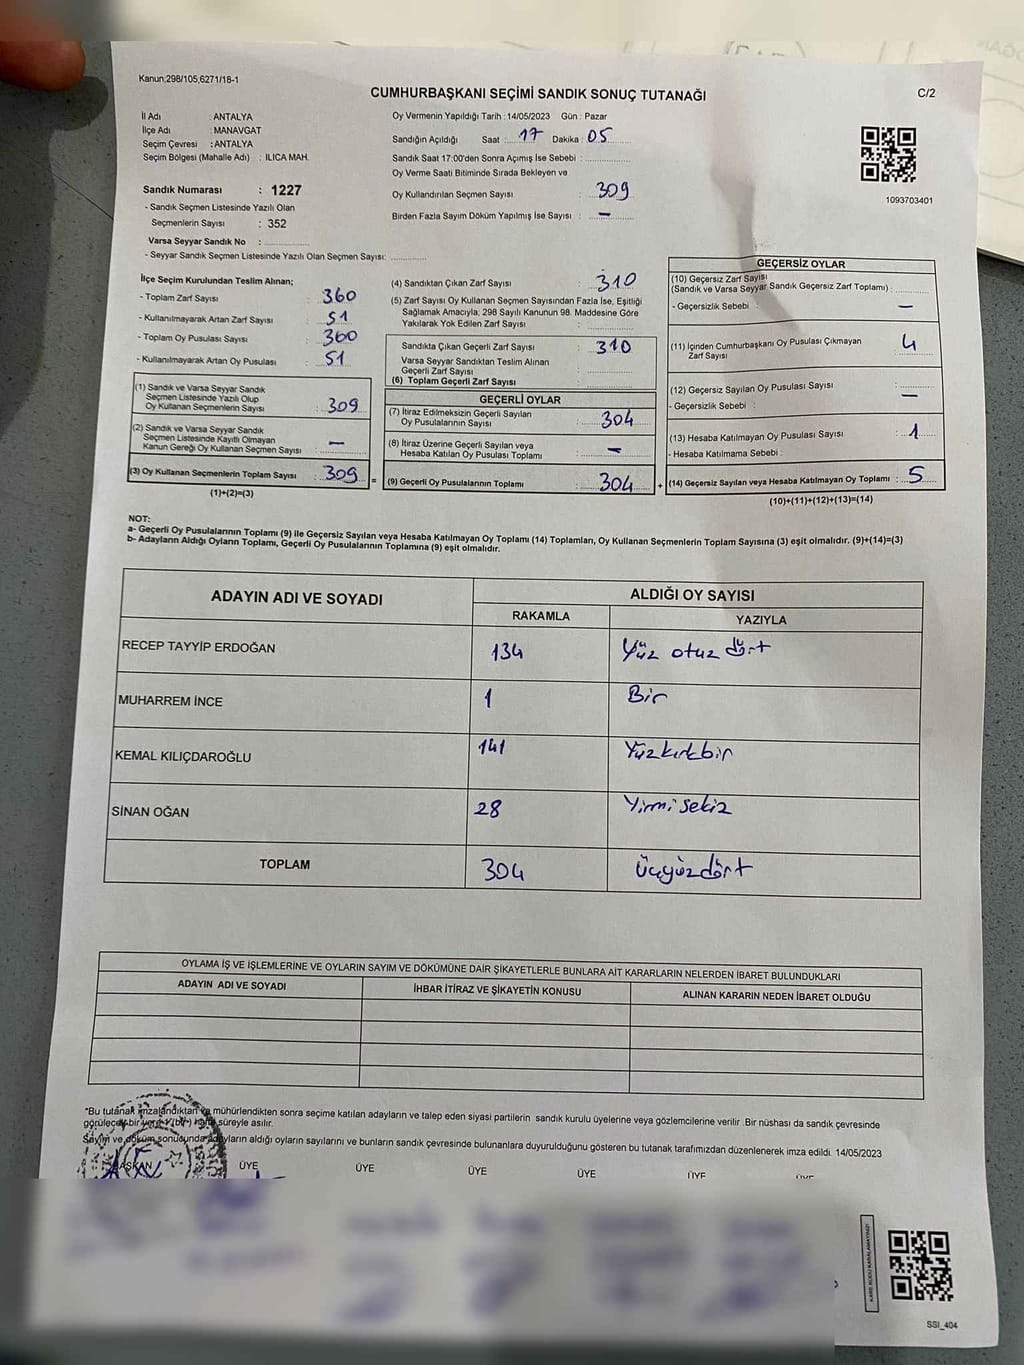 Kanun;298/105;6271/18-1
CUMHURBAŞKANI SEÇİMİ SANDIK SONUÇ TUTANAĞI
C/2
İl Adı : ANTALYA
İlçe Adı : MANAVGAT
Seçim Çevresi : ANTALYA
Seçim Bölgesi (Mahalle Adı) : ILICA MAH.
Sandık Numarası : 1227
- Sandık Seçmen Listesinde Yazılı Olan
Seçmenlerin Sayısı : 352
Varsa Seyyar Sandık No :
- Seyyar Sandık Seçmen Listesinde Yazılı Olan Seçmen Sayısı:
Oy Vermenin Yapıldığı Tarih : 14/05/2023 Gün : Pazar
Sandığın Açıldığı Saat : 17 Dakika : 05
Sandık Saat 17:00'den Sonra Açımış İse Sebebi :
Oy Verme Saati Bitiminde Sırada Bekleyen ve
Oy Kullandırılan Seçmen Sayısı : 309
Birden Fazla Sayım Döküm Yapılmış İse Sayısı : -
1093703401
İlçe Seçim Kurulundan Teslim Alınan;
- Toplam Zarf Sayısı : 360
- Kullanılmayarak Artan Zarf Sayısı : 51
- Toplam Oy Pusulası Sayısı : 360
- Kullanılmayarak Artan Oy Pusulası : 51
(1) Sandık ve Varsa Seyyar Sandık
Seçmen Listesinde Yazılı Olup
Oy Kullanan Seçmenlerin Sayısı : 309
(2) Sandık ve Varsa Seyyar Sandık
Seçmen Listesinde Kayıtlı Olmayan
Kanun Gereği Oy Kullanan Seçmen Sayısı : -
(3) Oy Kullanan Seçmenlerin Toplam Sayısı : 309 =
(1)+(2)=(3)
(4) Sandıktan Çıkan Zarf Sayısı : 310
(5) Zarf Sayısı Oy Kullanan Seçmen Sayısından Fazla İse, Eşitliği
Sağlamak Amacıyla; 298 Sayılı Kanunun 98. Maddesine Göre
Yakılarak Yok Edilen Zarf Sayısı :
Sandıkta Çıkan Geçerli Zarf Sayısı : 310
Varsa Seyyar Sandıktan Teslim Alınan
Geçerli Zarf Sayısı :
(6) Toplam Geçerli Zarf Sayısı :
GEÇERLİ OYLAR
(7) İtiraz Edilmeksizin Geçerli Sayılan
Oy Pusulalarının Sayısı : 304
(8) İtiraz Üzerine Geçerli Sayılan veya
Hesaba Katılan Oy Pusulası Toplamı : -
(9) Geçerli Oy Pusulalarının Toplamı : 304 +
GEÇERSİZ OYLAR
(10) Geçersiz Zarf Sayısı
(Sandık ve Varsa Seyyar Sandık Geçersiz Zarf Toplamı) :
- Geçersizlik Sebebi : -
(11) İçinden Cumhurbaşkanı Oy Pusulası Çıkmayan
Zarf Sayısı : 4
(12) Geçersiz Sayılan Oy Pusulası Sayısı : -
- Geçersizlik Sebebi :
(13) Hesaba Katılmayan Oy Pusulası Sayısı : 1
- Hesaba Katılmama Sebebi :
(14) Geçersiz Sayılan veya Hesaba Katılmayan Oy Toplamı : 5
(10)+(11)+(12)+(13)=(14)
NOT:
a- Geçerli Oy Pusulalarının Toplamı (9) ile Geçersiz Sayılan veya Hesaba Katılmayan Oy Toplamı (14) Toplamları, Oy Kullanan Seçmenlerin Toplam Sayısına (3) eşit olmalıdır. (9)+(14)=(3)
b- Adayların Aldığı Oyların Toplamı, Geçerli Oy Pusulalarının Toplamına (9) eşit olmalıdır.
ADAYIN ADI VE SOYADI
ALDIĞI OY SAYISI
RAKAMLA YAZIYLA
RECEP TAYYİP ERDOĞAN 134 Yüz otuz dört
MUHARREM İNCE 1 Bir
KEMAL KILIÇDAROĞLU 141 Yüzkırkbir
SİNAN OĞAN 28 Yirmisekiz
TOPLAM 304 Üçyüzdört
OYLAMA İŞ VE İŞLEMLERİNE VE OYLARIN SAYIM VE DÖKÜMÜNE DAİR ŞİKAYETLERLE BUNLARA AİT KARARLARIN NELERDEN İBARET BULUNDUKLARI
ADAYIN ADI VE SOYADI İHBAR İTİRAZ VE ŞİKAYETİN KONUSU ALINAN KARARIN NEDEN İBARET OLDUĞU
*Bu tutanak imzalandıktan ve mühürlendikten sonra seçime katılan adayların ve talep eden siyasi partilerin sandık kurulu üyelerine veya gözlemcilerine verilir. Bir nüshası da sandık çevresinde
görülecek bir yere 1 (bir) hafta süreyle asılır.
Sayım ve döküm sonucunda adayların aldığı oyların sayılarını ve bunların sandık çevresinde bulunanlara duyurulduğunu gösteren bu tutanak tarafımızdan düzenlenerek imza edildi. 14/05/2023
BAŞKAN ÜYE ÜYE ÜYE ÜYE ÜYE ÜYE
KARE KODU KARALAMAYINIZ!
SSI_404